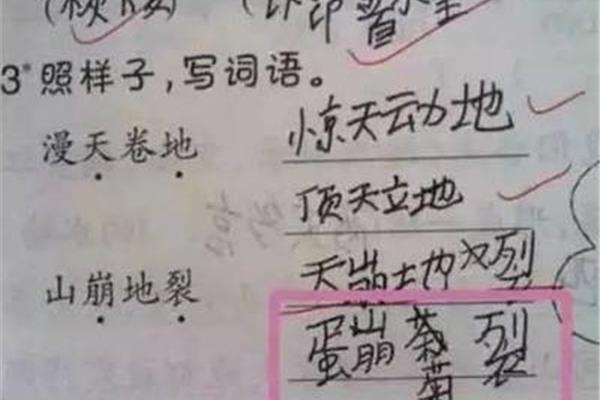 3 照样子，写词语。
漫天卷地 惊天动地
顶天立地
山崩地裂 天崩地裂
蛋崩菊裂